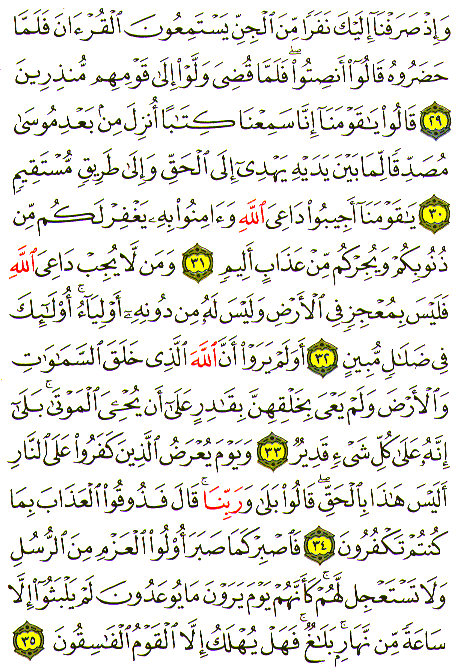 وَإِذْ صَرَفْنَآ إِلَيْكَ نَفَرًا مِّنَ ٱلْجِنِّ يَسْتَمِعُونَ ٱلْقُرْءَانَ فَلَمَّا
حَضَرُوهُ قَالُوٓا۟ أَنصِتُوا۟ ۖ فَلَمَّا قُضِىَ وَلَّوْا۟ إِلَىٰ قَوْمِهِم مُّنذِرِينَ
٢٩ قَالُوا۟ يَـٰقَوْمَنَآ إِنَّا سَمِعْنَا كِتَـٰبًا أُنزِلَ مِنۢ بَعْدِ مُوسَىٰ
مُصَدِّقًا لِّمَا بَيْنَ يَدَيْهِ يَهْدِىٓ إِلَى ٱلْحَقِّ وَإِلَىٰ طَرِيقٍ مُّسْتَقِيمٍ
٣٠ يَـٰقَوْمَنَآ أَجِيبُوا۟ دَاعِىَ ٱللَّهِ وَءَامِنُوا۟ بِهِۦ يَغْفِرْ لَكُم مِّن
ذُنُوبِكُمْ وَيُجِرْكُم مِّنْ عَذَابٍ أَلِيمٍ ٣١ وَمَن لَّا يُجِبْ دَاعِىَ ٱللَّهِ
فَلَيْسَ بِمُعْجِزٍ فِى ٱلْأَرْضِ وَلَيْسَ لَهُۥ مِن دُونِهِۦٓ أَوْلِيَآءُ ۚ أُو۟لَـٰٓئِكَ
فِى ضَلَـٰلٍ مُّبِينٍ ٣٢ أَوَلَمْ يَرَوْا۟ أَنَّ ٱللَّهَ ٱلَّذِى خَلَقَ ٱلسَّمَـٰوَٰتِ
وَٱلْأَرْضَ وَلَمْ يَعْىَ بِخَلْقِهِنَّ بِقَـٰدِرٍ عَلَىٰٓ أَن يُحْـِۧىَ ٱلْمَوْتَىٰ ۚ بَلَىٰٓ
إِنَّهُۥ عَلَىٰ كُلِّ شَىْءٍ قَدِيرٌ ٣٣ وَيَوْمَ يُعْرَضُ ٱلَّذِينَ كَفَرُوا۟ عَلَى ٱلنَّارِ
أَلَيْسَ هَـٰذَا بِٱلْحَقِّ ۖ قَالُوا۟ بَلَىٰ وَرَبِّنَا ۚ قَالَ فَذُوقُوا۟ ٱلْعَذَابَ بِمَا
كُنتُمْ تَكْفُرُونَ ٣٤ فَٱصْبِرْ كَمَا صَبَرَ أُو۟لُوا۟ ٱلْعَزْمِ مِنَ ٱلرُّسُلِ
وَلَا تَسْتَعْجِل لَّهُمْ ۚ كَأَنَّهُمْ يَوْمَ يَرَوْنَ مَا يُوعَدُونَ لَمْ يَلْبَثُوٓا۟ إِلَّا
سَاعَةً مِّن نَّهَارٍۭ ۚ بَلَـٰغٌ ۚ فَهَلْ يُهْلَكُ إِلَّا ٱلْقَوْمُ ٱلْفَـٰسِقُونَ ٣٥